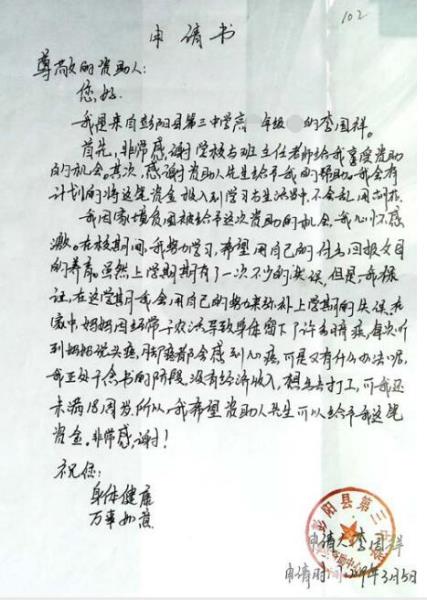 102
申请书
尊敬的资助人:
您好.
我是来自彭阳县第三中学高 年级 的李国祥。
首先,非常感谢学校与班主任老师给我享受资助
的机会。其次,感谢资助人先生给予我的帮助。我会有
计划的将这笔资金投入到学习与生活当中,不会乱用
我因家境贫困被给予这次资助的机会,我心怀感
激。在校期间,我努力学习,希望用自己的付出回报父母
的养育。虽然上学期期有了一次不少的失误,但是,我保
证,在这学期我会用自己的努力来弥补上学期的失误。在
家中,妈妈因经常干农活导致身体留下了许多暗疾,每次听
到妈妈说头疼,脚疼都会感到心疼,可是又有什么办法呢,
我正处于念书的阶段,没有经济收入,想出去打工,可我还
未满18周岁,所以,我希望资助人先生可以给予我这笔
资金。非常感谢!
祝您:
身体健康
万事如意
彭阳县第三
申请人:李国祥
申请时间:2019年3月5日